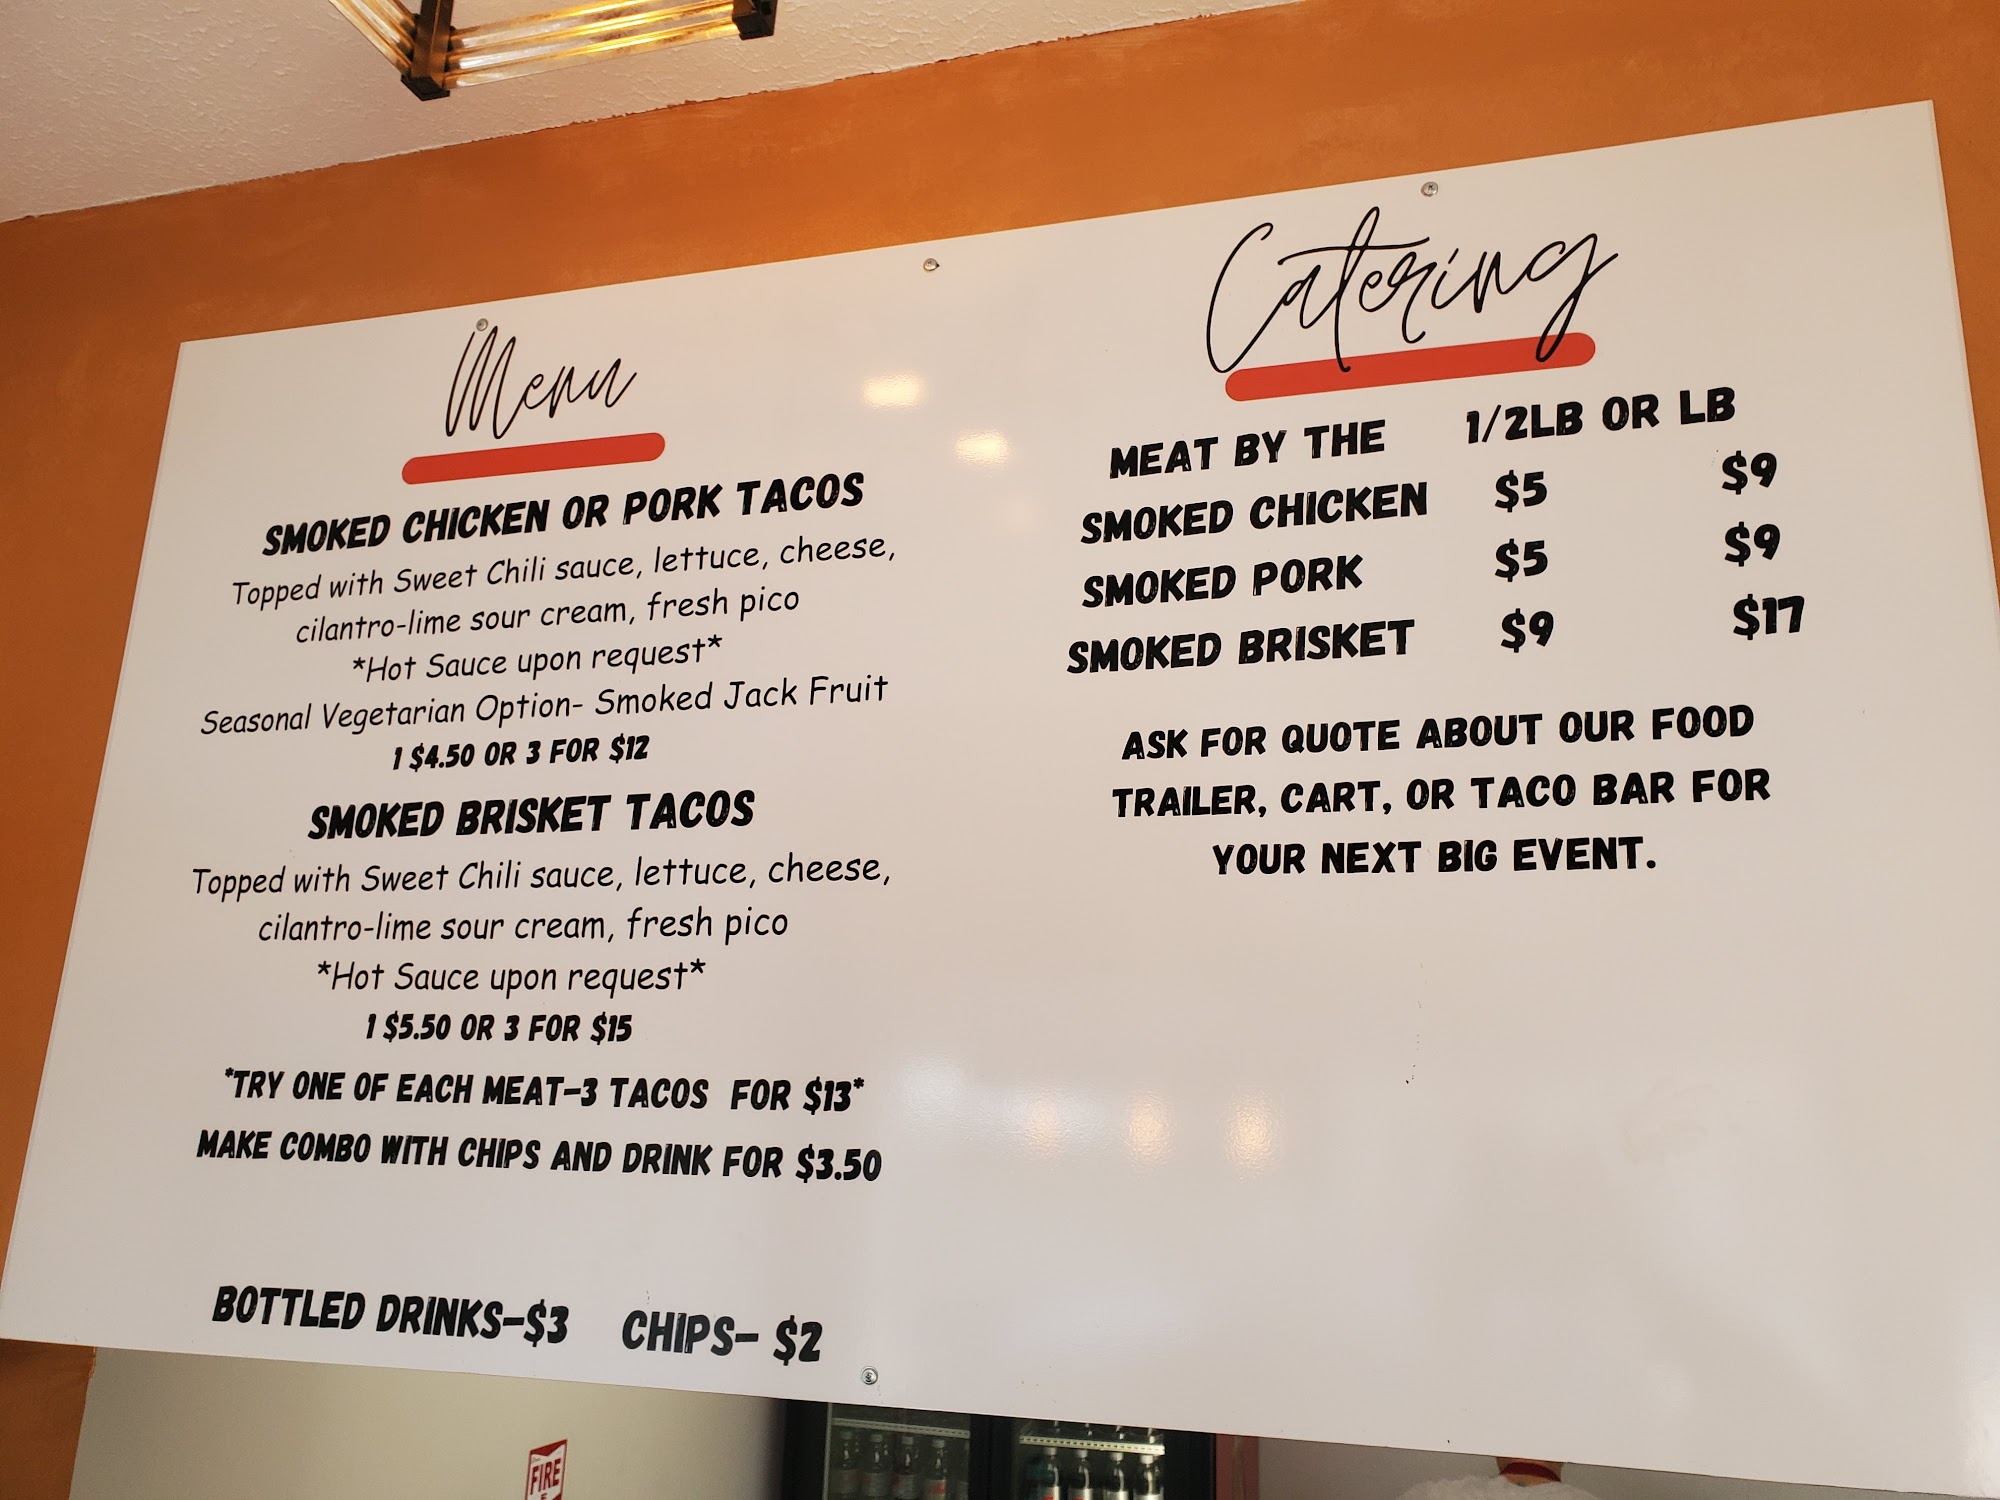 Menu
SMOKED CHICKEN OR PORK TACOS
Topped with Sweet Chili sauce, lettuce, cheese,
cilantro-lime sour cream, fresh pico
*Hot Sauce upon request*
Seasonal Vegetarian Option- Smoked Jack Fruit
1 $4.50 OR 3 FOR $12
SMOKED BRISKET TACOS
Topped with Sweet Chili sauce, lettuce, cheese,
cilantro-lime sour cream, fresh pico
*Hot Sauce upon request*
1 $5.50 OR 3 FOR $15
*TRY ONE OF EACH MEAT-3 TACOS FOR $13*
MAKE COMBO WITH CHIPS AND DRINK FOR $3.50
BOTTLED DRINKS-$3 CHIPS- $2
Catering
MEAT BY THE 1/2LB OR LB
SMOKED CHICKEN $5 $9
SMOKED PORK $5 $9
SMOKED BRISKET $9 $17
ASK FOR QUOTE ABOUT OUR FOOD
TRAILER, CART, OR TACO BAR FOR
YOUR NEXT BIG EVENT.
FIRE